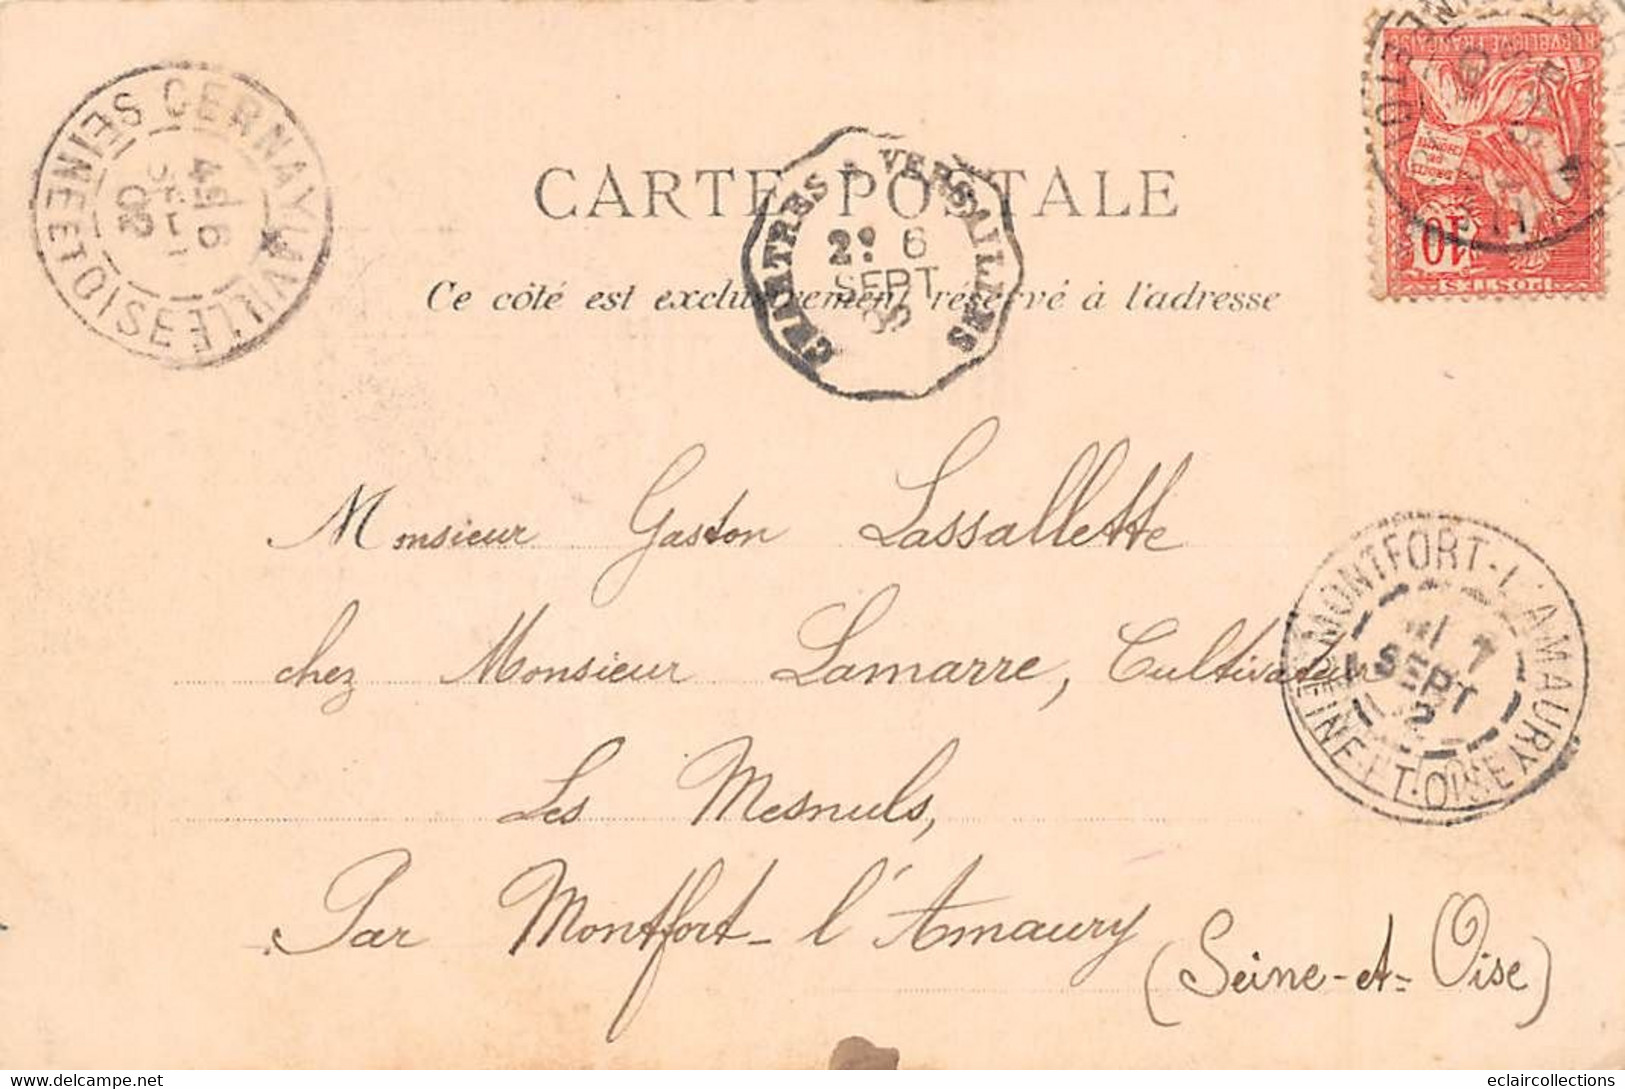 CERNAY-LA-VILLE
SEINE ET OISE
CARTE POSTALE
CHARTRES A VERSAILLES
2º 6
SEPT
Ce côté est exclusivement réservé à l'adresse
REPVBLIQVE FRANÇAISE
10
POSTES
Monsieur Gaston Lassallette
chez Monsieur Lamarre, Cultivateur
Les Mesnuls,
Par Montfort-l'Amaury
(Seine-et-Oise)
MONTFORT-L'AMAURY
7
SEPT
SEINE-ET-OISE
eclaircollections